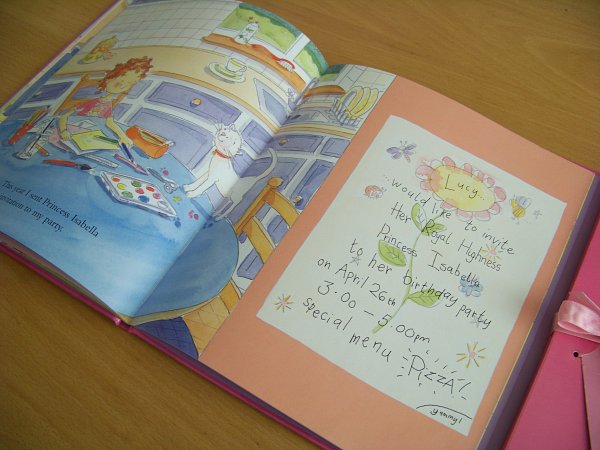 This year I sent Princess Isabella
invitation to my party.
Lucy...
...would like to invite
Her Royal Highness
Princess Isabella
to her birthday party
on April 26th
3.00 - 5.00pm
special menu PIZZA!
yummy!